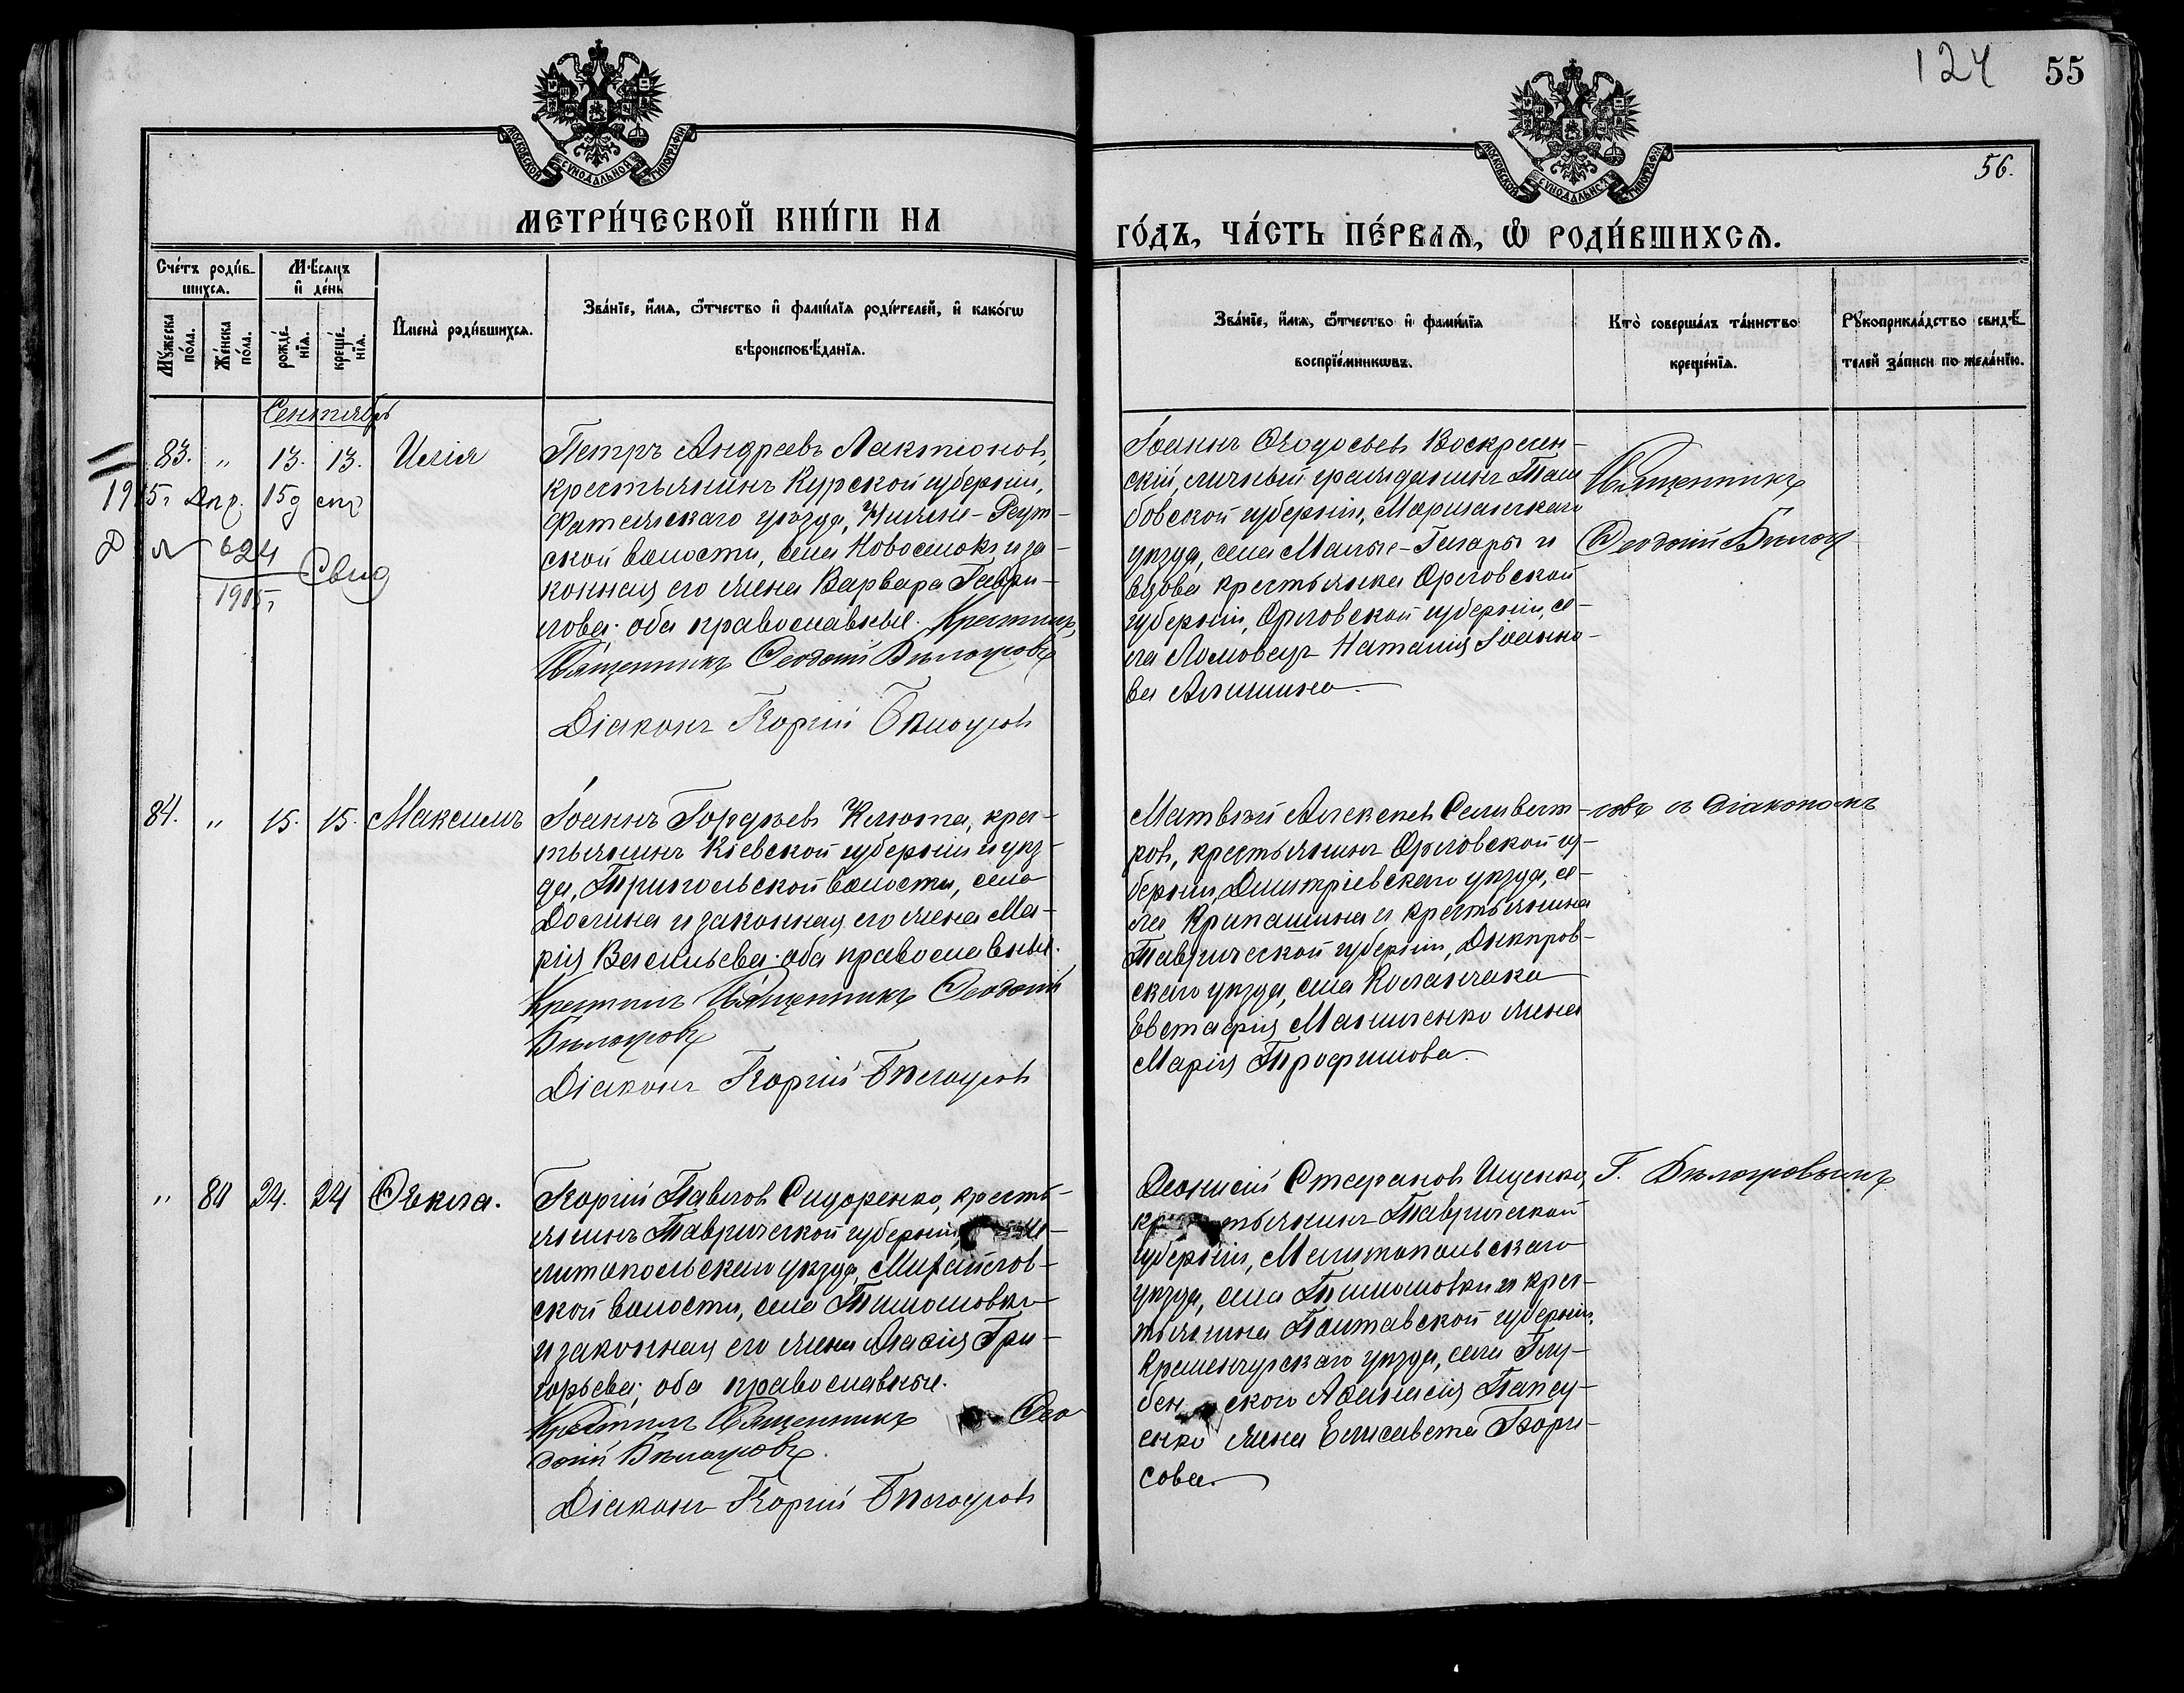 124 55
56.
МОСКОВСКОЙ СѴНОДАЛЬНОЙ ТИПОГРАФІИ
МОСКОВСКОЙ СѴНОДАЛЬНОЙ ТИПОГРАФІИ
МЕТРИ́ЧЕСКОЙ КНИ́ГИ НА
ГО́ДЪ, ЧА́СТЬ ПЕ́РВАѦ, Ѿ РОДИ́ВШИХСѦ.
Сче́тъ роди́в-
шихсѧ.
Мꙋ́жеска по́ла.
Же́нска по́ла.
Мѣ́сѧцъ
и҆ де́нь
рожде́-
нїѧ.
креще́-
нїѧ.
И҆мена̀ роди́вшихсѧ.
Зва́нїе, и҆́мѧ, ѻ҆́тчество и҆ фами́лїѧ роди́телей, и҆ како́гѡ
вѣроисповѣ́данїѧ.
Зва́нїе, и҆́мѧ, ѻ҆́тчество и҆ фами́лїѧ
воспрїе́мникѡвъ.
Кто̀ соверша́лъ та́инство
креще́нїѧ.
Рꙋкоприкла́дство свидѣ́-
телей за́писи по жела́нїю.
Сентябрь
83. " 13. 13. Илія
1915 Апр. 15
624
1915 Свид
Петръ Андреевъ Лактіоновъ,
крестьянинъ Курской губерніи,
Фатежскаго уѣзда, Нижне-Реут-
ской волости, села Новоселокъ и за-
конная его жена Варвара Гаври-
лова; оба православные. Крестилъ
Священникъ Феодотій Бѣлоусовъ
Діаконъ Георгій Бѣлоусовъ
Іоаннъ Феодосьевъ Воскресен-
скій, личный гражданинъ Там
бовской губерніи, Моршанскаго
уѣзда, села Малые-Гагары и
вдова крестьянка Орловской
губерніи, Орловской губерніи, се-
ла Ломовецъ Наталія Іоанно-
ва Алешина
Священникъ
84. " 15. 15. Максимъ
Іоаннъ Гордѣевъ Клюта, крес-
тьянинъ Кіевской губерніи и уѣз-
да, Трипольской волости, села
Долина и законная его жена Ма-
рія Васильева; оба православные.
Крестилъ Священникъ Феодотій
Бѣлоусовъ
Діаконъ Георгій Бѣлоусовъ
Матвѣй Алексѣевъ Селиверст-
ровъ, крестьянинъ Орловской гу-
берніи, Дмитріевскаго уѣзда, се-
ла Крапашина и крестьянина
Таврической губерніи, Днѣпров-
скаго уѣзда, села Каланчака
Евстафія Манченко жена
Марія Трофимова.
совъ съ діакономъ
" 84 24. 24 Ѳекла.
Георгій Павловъ Сидоренко, кресть-
янинъ Таврической губерніи, Ме-
литопольскаго уѣзда, Михайлов-
ской волости, села Тимошовки
и законная его жена Марія Гри-
горьева; оба православные.
Крестилъ Священникъ Фео
дотій Бѣлоусовъ.
Діаконъ Георгій Бѣлоусовъ
Діонисій Стефановъ Ищенко,
крестьянинъ Таврической
губерніи, Мелитопольскаго
уѣзда, села Тимошовки и крес-
тьянина Полтавской губерніи,
Кременчугскаго уѣзда, села Глу-
бен ского Аѳанасія Папсу-
енко жена Елисавета Бори-
сова.
Г. Бѣлоусовымъ